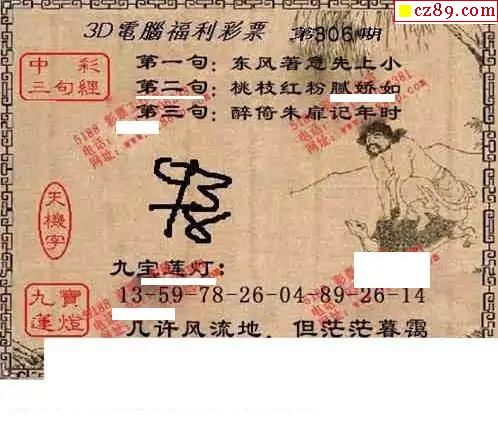 cz89.com
3D電腦福利彩票 第306期
中彩
三句經
第一句：东风著意先上小
第二句：桃枝红粉腻娇如
第三句：醉倚朱扉记年时
天機字
九宝莲灯：
九寶
蓮燈
13-59-78-26-04-89-26-14
几许风流地，但茫茫暮霭